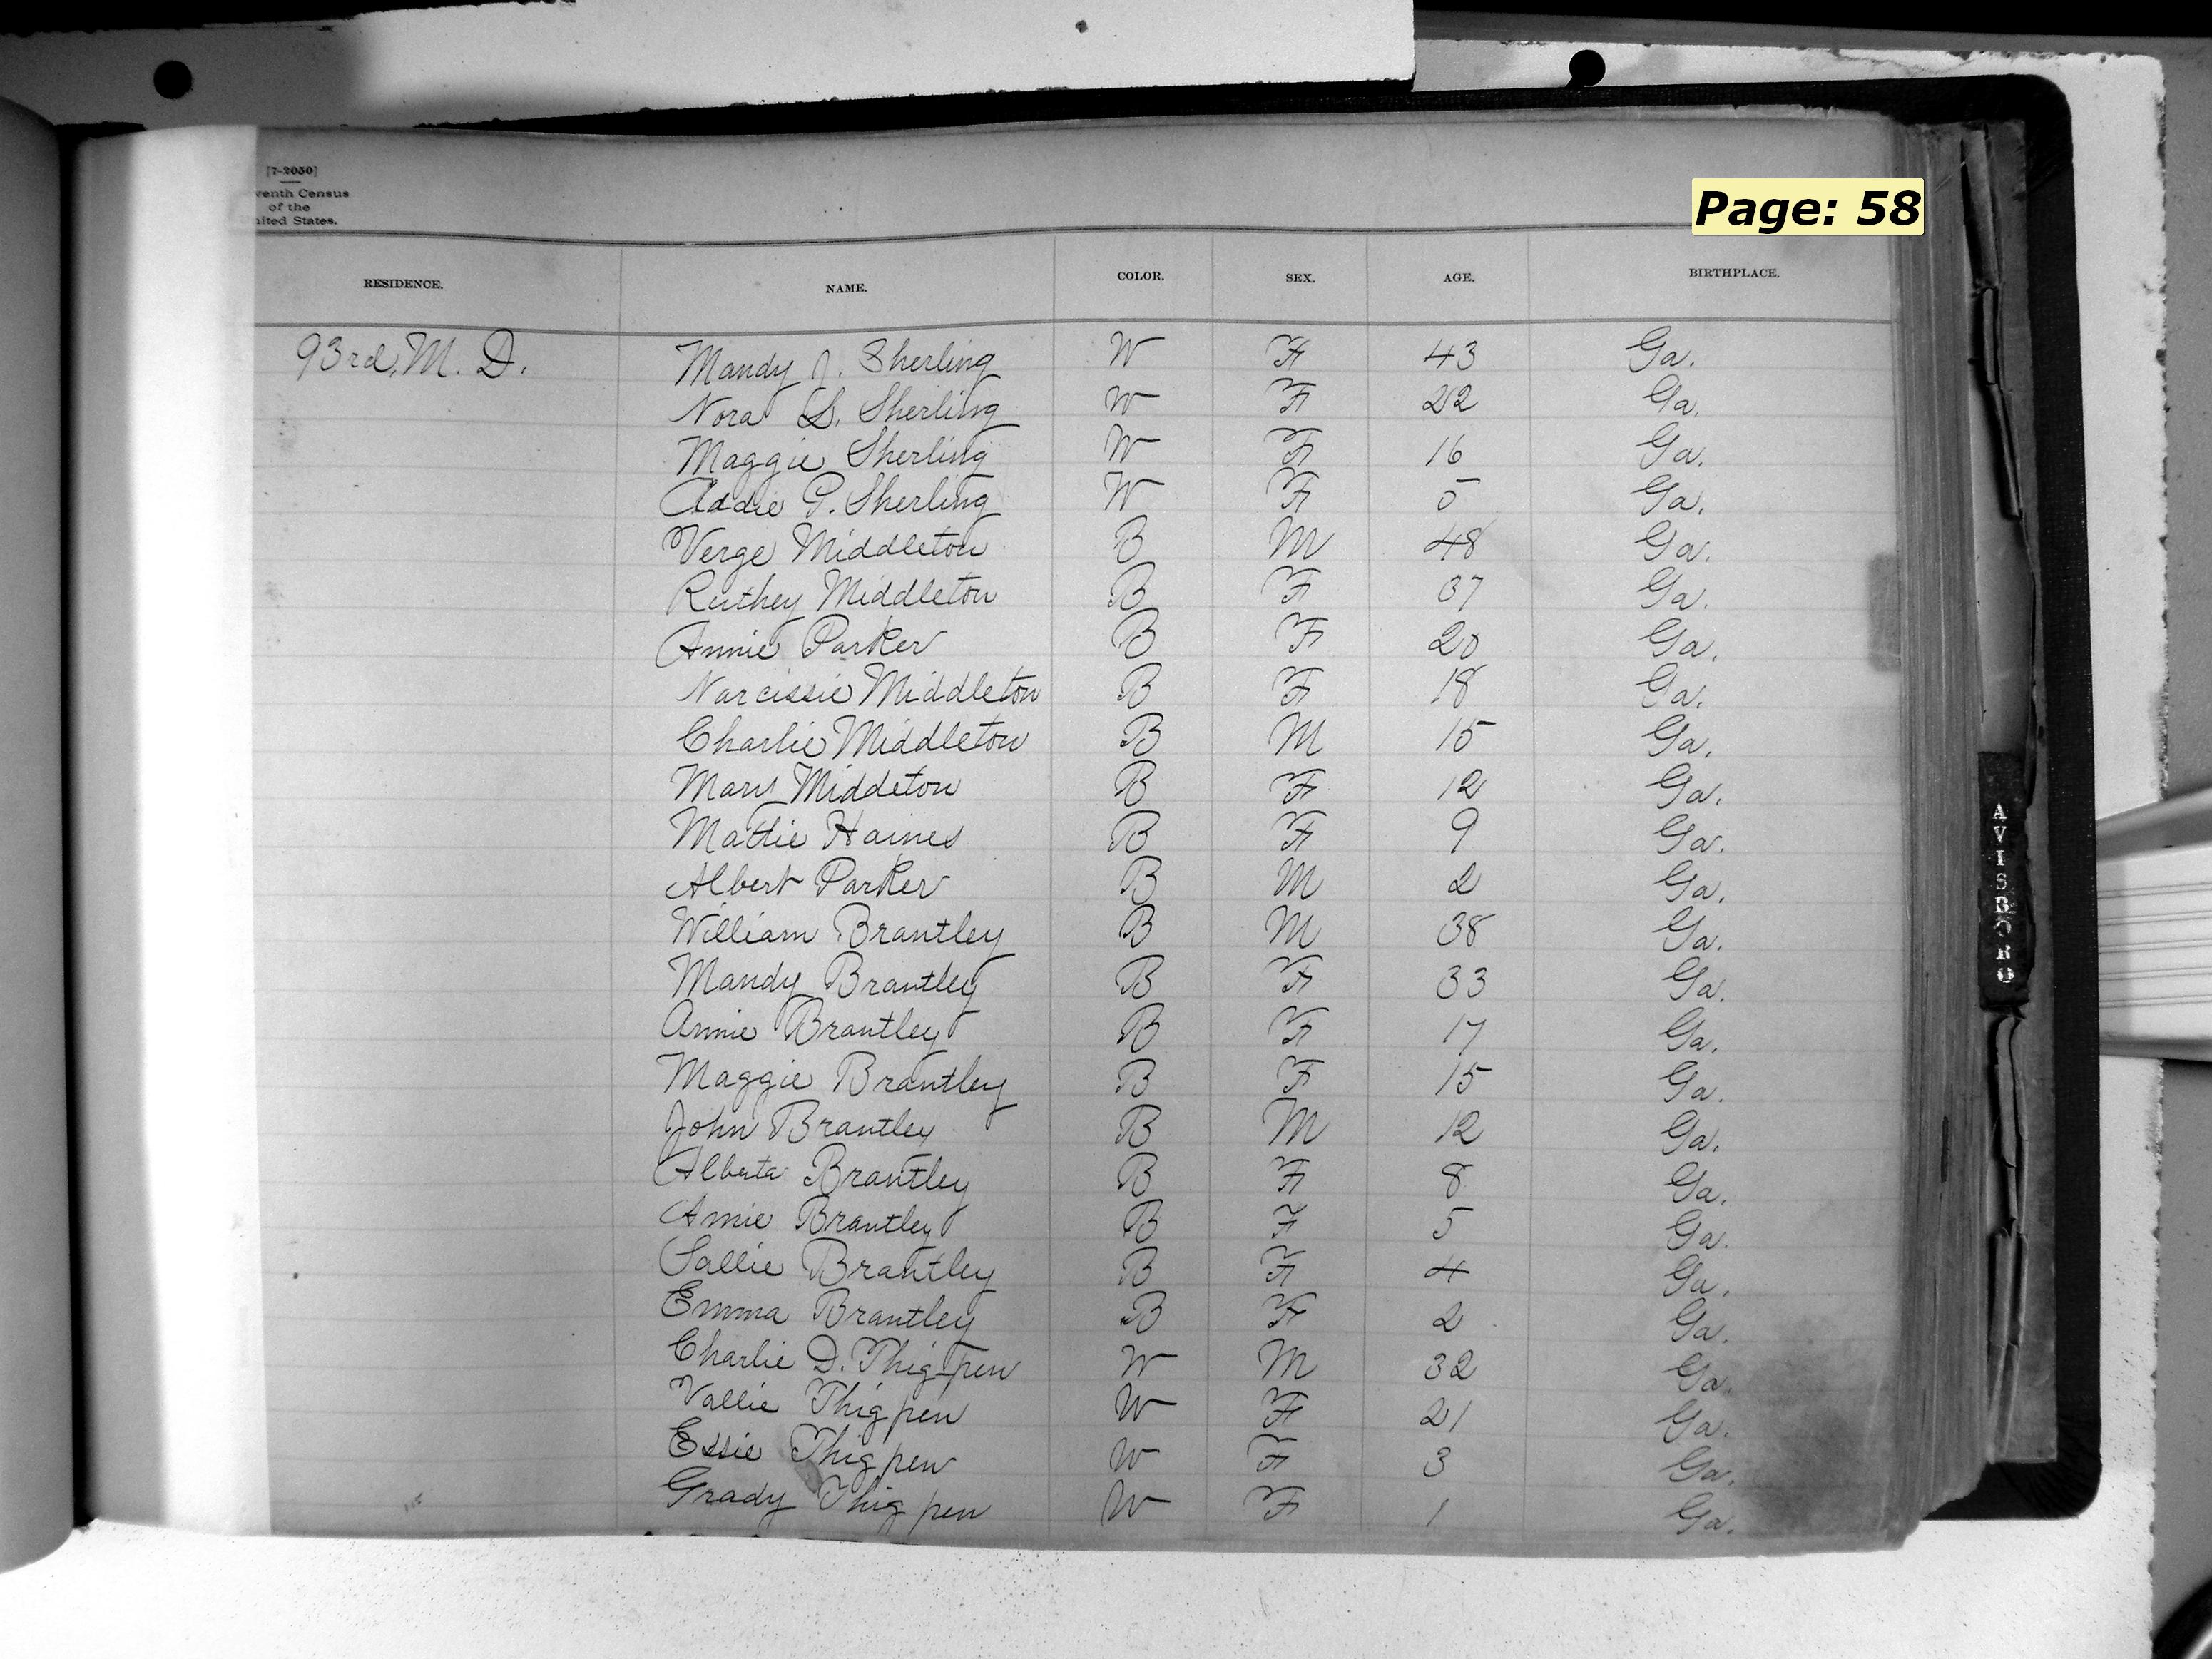 [7-2050]
venth Census
of the
nited States.
Page: 58
RESIDENCE. NAME. COLOR. SEX. AGE. BIRTHPLACE.
93rd, M. D. Mandy J. Sherling W F 43 Ga.
Nora S. Sherling W F 22 Ga.
Maggie Sherling W F 16 Ga.
Addie P. Sherling W F 5 Ga.
Verge Middleton B M 48 Ga.
Ruthey Middleton B F 37 Ga.
Annie Parker B F 20 Ga.
Narcissie Middleton B F 18 Ga.
Charlie Middleton B M 15 Ga.
Mary Middeton B F 12 Ga.
Mattie Haines B F 9 Ga.
Albert Parker B M 2 Ga.
William Brantley B M 38 Ga.
Mandy Brantley B F 33 Ga.
Annie Brantley B F 17 Ga.
Maggie Brantley B F 15 Ga.
John Brantley B M 12 Ga.
Alberta Brantley B F 8 Ga.
Amie Brantley B F 5 Ga.
Sallie Brantley B F 4 Ga.
Emma Brantley B F 2 Ga.
Charlie D. Thigpen W M 32 Ga.
Vallie Thigpen W F 21 Ga.
Essie Thigpen W F 3 Ga.
Grady Thigpen W F 1 Ga.